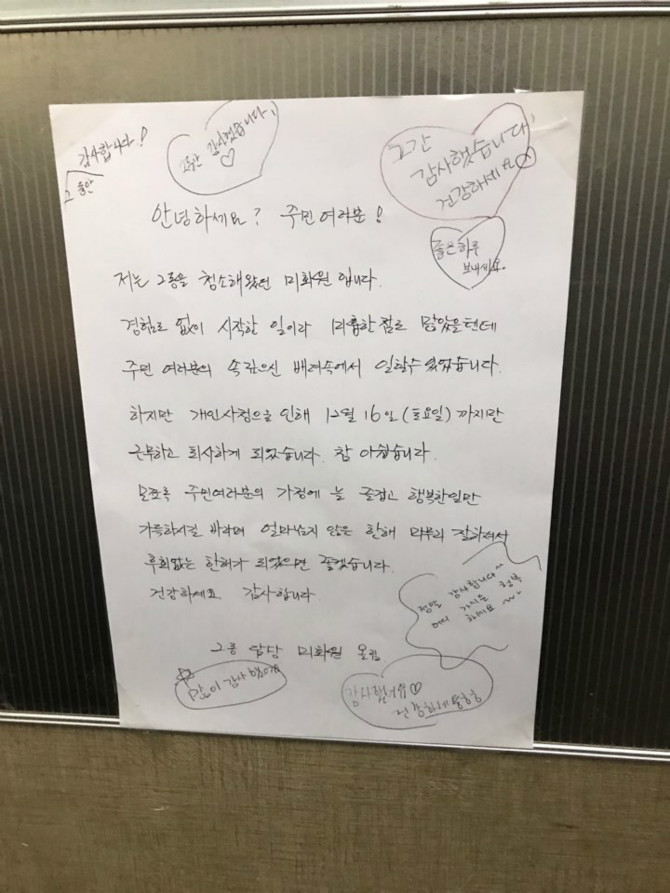 그동안
감사합니다!
그동안 감사했습니다. ♡
그간
감사했습니다!
건강하세요
좋은하루
보내세요.
안녕하세요? 주민여러분!
저는 2층을 청소해왔던 미화원 입니다.
경험도 없이 시작한 일이라 미흡한 점도 많았을텐데
주민 여러분의 속 깊으신 배려속에서 일할수있었습니다.
하지만 개인사정으로 인해 12월 16일(토요일) 까지만
근무하고 퇴사하게 되었습니다. 참 아쉽습니다.
모쪼록 주민여러분의 가정에 늘 즐겁고 행복한일만
가득하시길 바라며 얼마남지 않은 한해 마무리 잘하셔서
후회없는 한해가 되었으면 좋겠습니다.
건강하세요 감사합니다
정말 감사합니다^^
어디 가시든 행복
하세요 ~
2층 담당 미화원 올림
많이 감사했어요
감사했어유 ♡
건강하세용헝